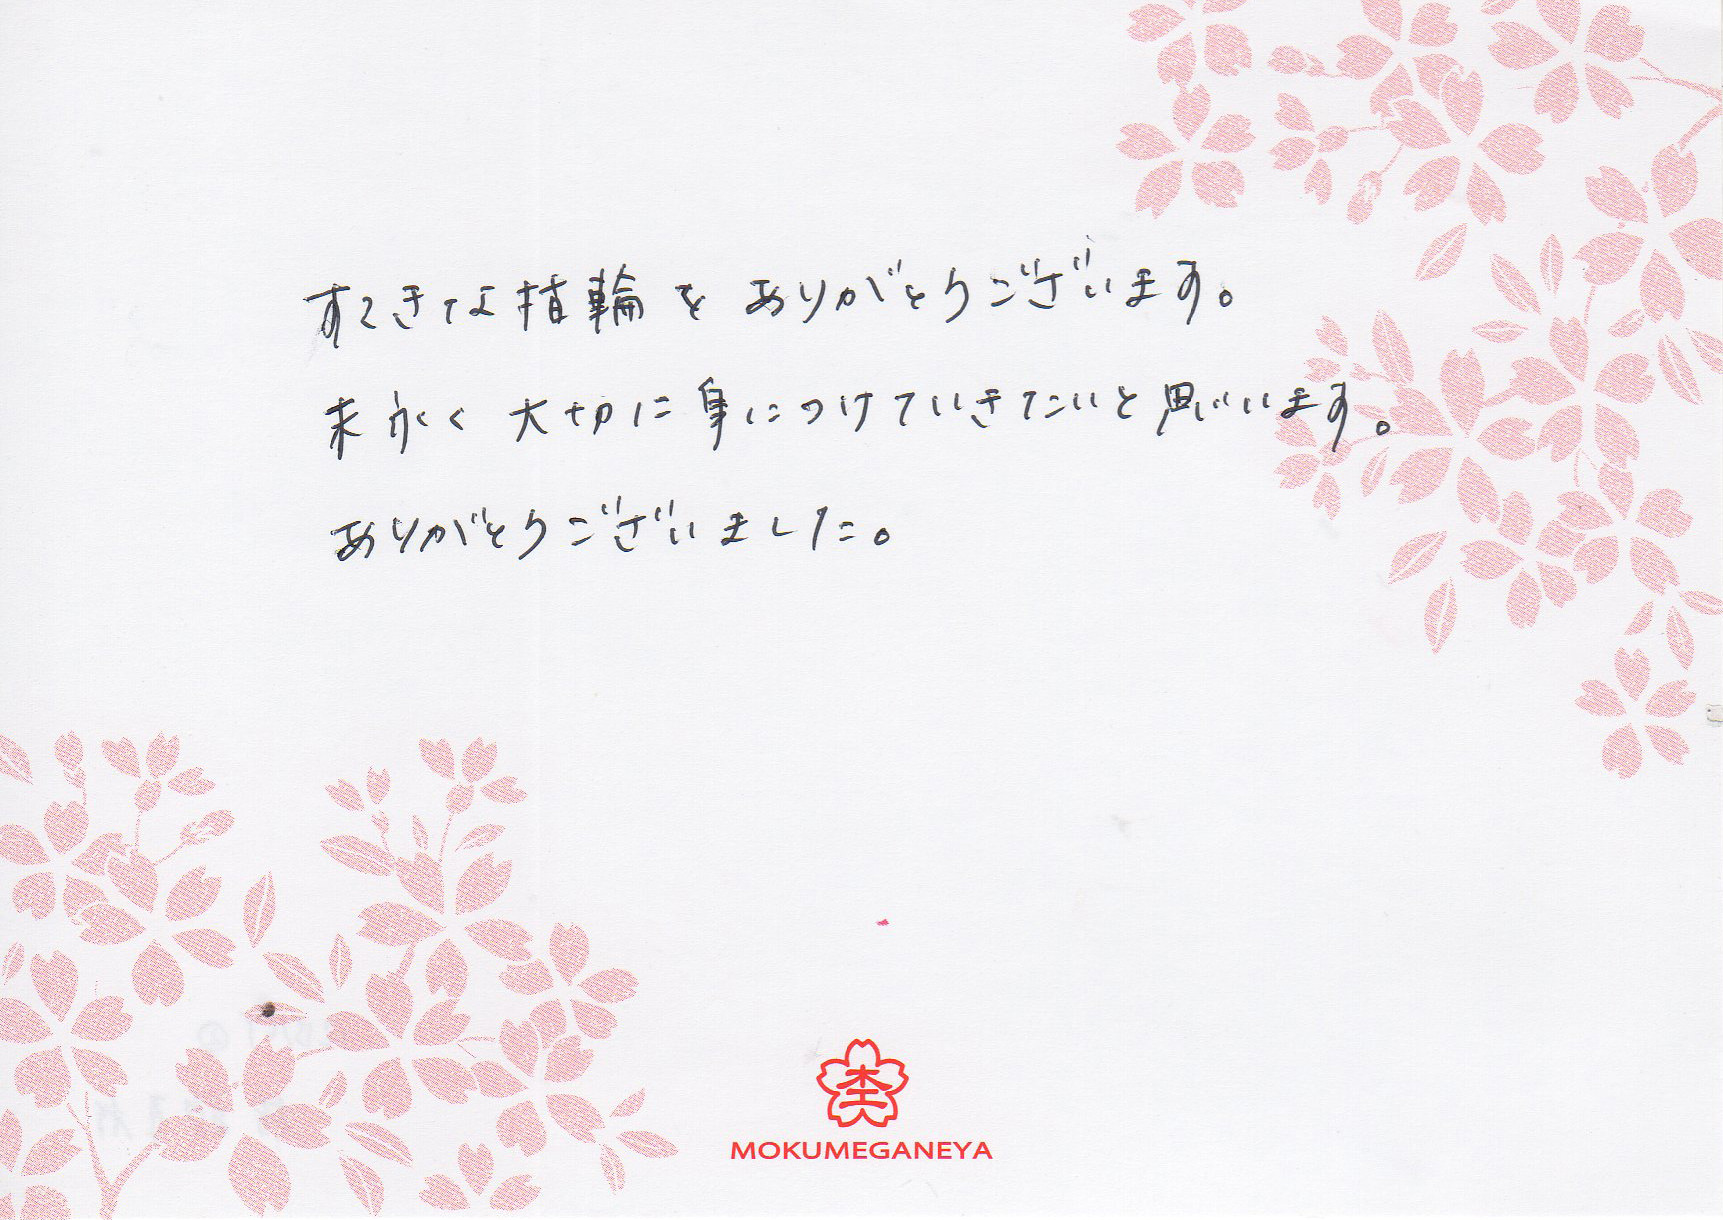 すてきな指輪をありがとうございます。
末永く大切に身につけていきたいと思います。
ありがとうございました。
杢
MOKUMEGANEYA